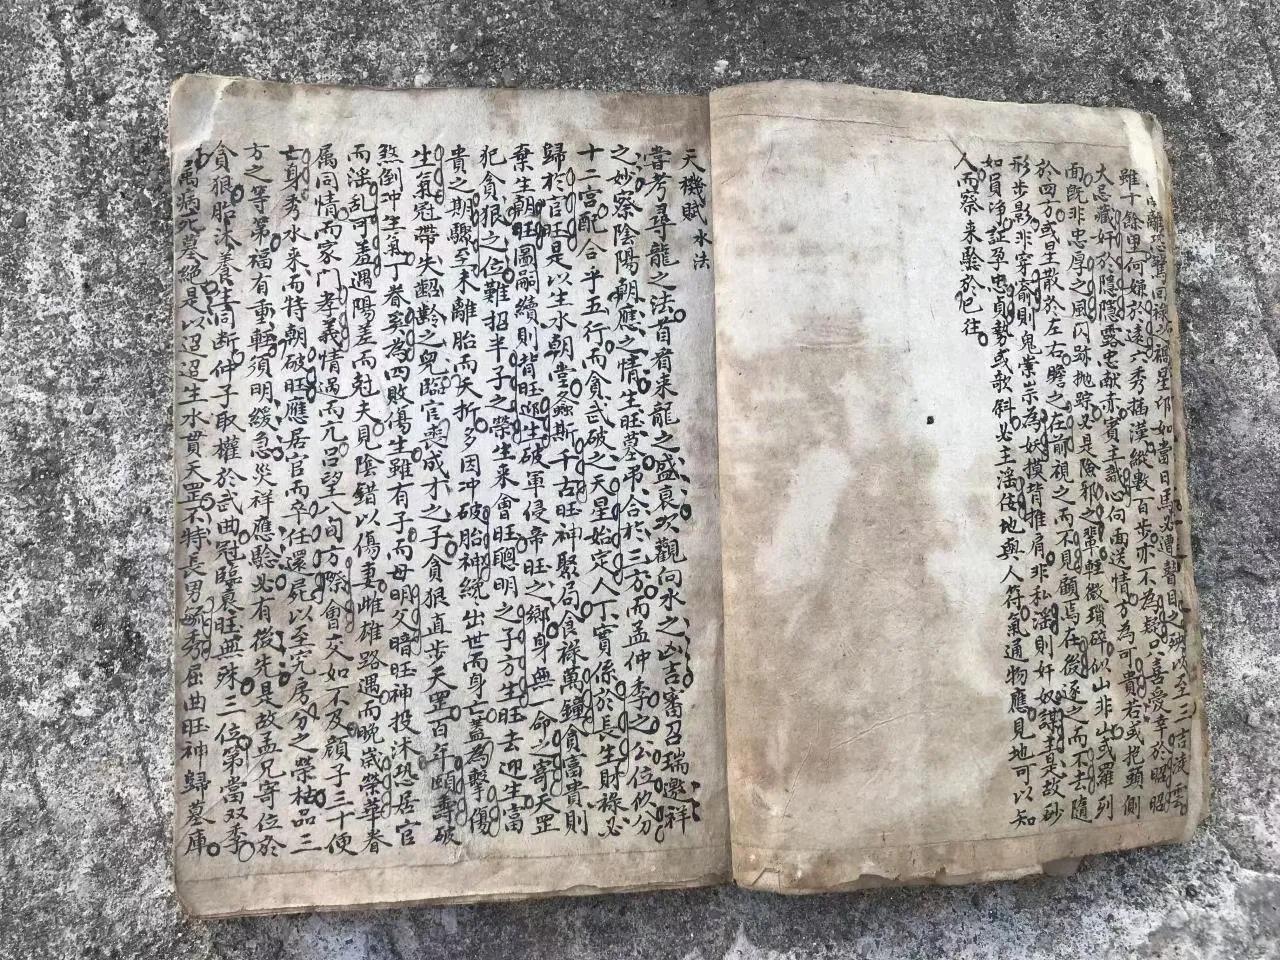 離恐驚回祿之禍星印如當日馬必遭瞽目之殃以至三吉凌雲
雖千餘里何嫌於遠六秀插漢縱數百步亦不為疑只喜受幸於昭昭
大忌藏奸於隱隱露忠献赤賓主識心向面送情方為可貴若或抱頭側
面既非忠厚之風閃跡抛踪必是險邪之輩輕微瑣碎似山非山或羅列
於四方或星散於左右瞻之在前視之而不見顧焉在後逐之而不去隨
形步影非穿窬則鬼祟崇為妖摸背推肩非私淫則奸奴謀主是故砂
如員净証至忠貞勢或歌斜必主淫伎地與人符氣通物應見地可以知
人而察來驗於已往
天機賦水法
嘗考尋龍之法首看来龍之盛衰次觀向水之凶吉審召瑞邀祥
之妙察陰陽朝應之情生旺墓帛合於三方而孟仲季之公位攸分
十二宮配合乎五行而貪武破之天星始定人丁實係於長生財祿必
歸於官旺是以生水朝堂螽斯千古旺神聚局食祿萬鐘貪富貴則
棄生朝旺圖嗣續則背旺迎生破軍侵帝旺之鄉身無一命之寄天罡
犯貪狼之位難招半子之榮生来會旺聰明之子方生旺去迎生富
貴之期驟至未離胎而夭折多因冲破胎神纔出世而身亡蓋為擊傷
生氣冠帶失齠齡之兒臨官喪成才之子貪狼直步天罡百年頤壽破
煞倒冲生氣丁眷奚為四敗傷生雖有子而母明父暗旺神投沐恐居官
而淫乱可羞遇陽差而尅夫見陰錯以傷妻雌雄路遇而晚歲榮華眷
属同情而家門孝義情過而亢呂望八旬方際會交如不及顔子三十便
亡身秀水来而特朝破旺應居官而卒任還屍以至究房分之榮枯品三
方之等第福有重輕須明緩急災祥應驗必有後先是故孟兄寄位於
貪狼胎沐養生同断仲子取權於武曲冠臨衰旺無殊三位第當双季
病死墓絕是以迢迢生水貫天罡不特長男毓秀屈曲旺神歸墓庫